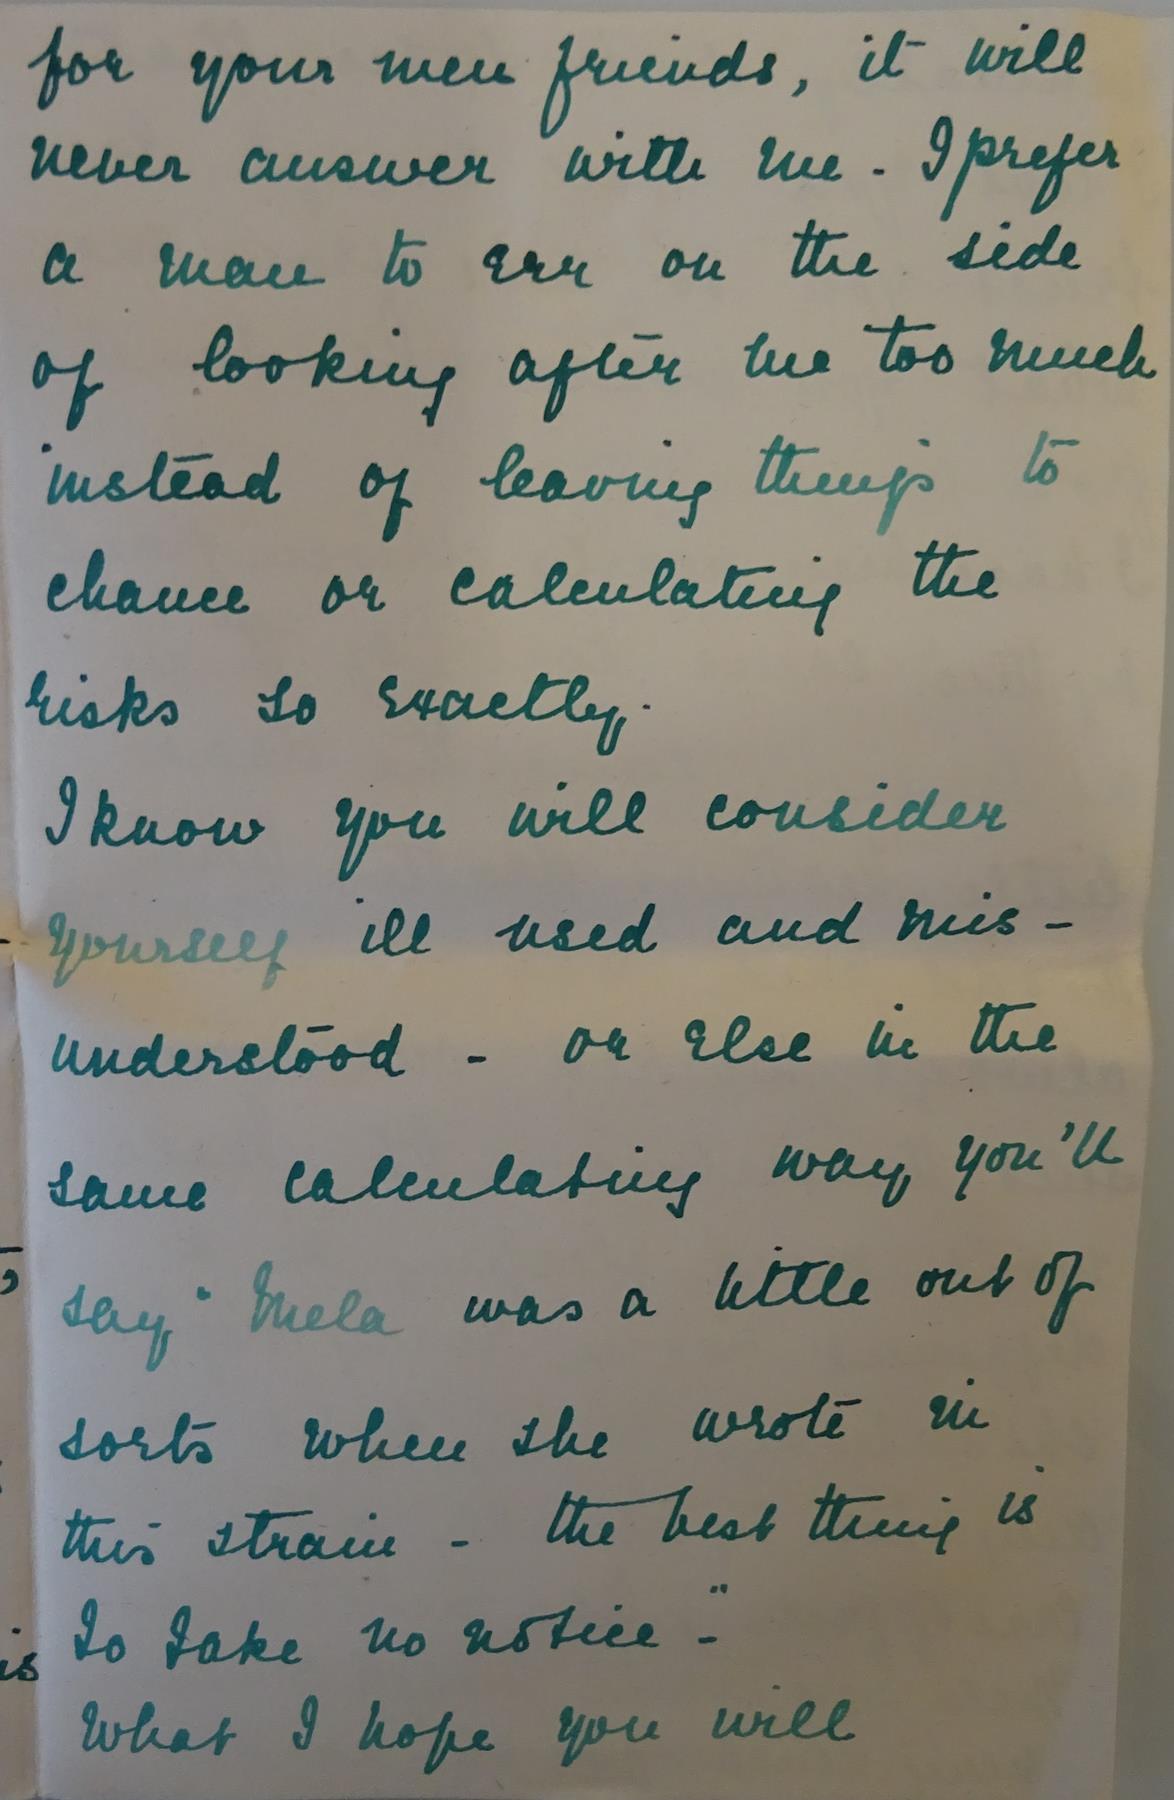 for your men friends, it will
never answer with me - I prefer
a man to err on the side
of looking after me too much
instead of leaving things to
chance or calculating the
risks so exactly.
I know you will consider
yourself ill used and mis-
understood - or else in the
same calculating way you'll
say "Mela was a little out of
sorts when she wrote in
this strain - the best thing is
to take no notice -"
What I hope you will
is